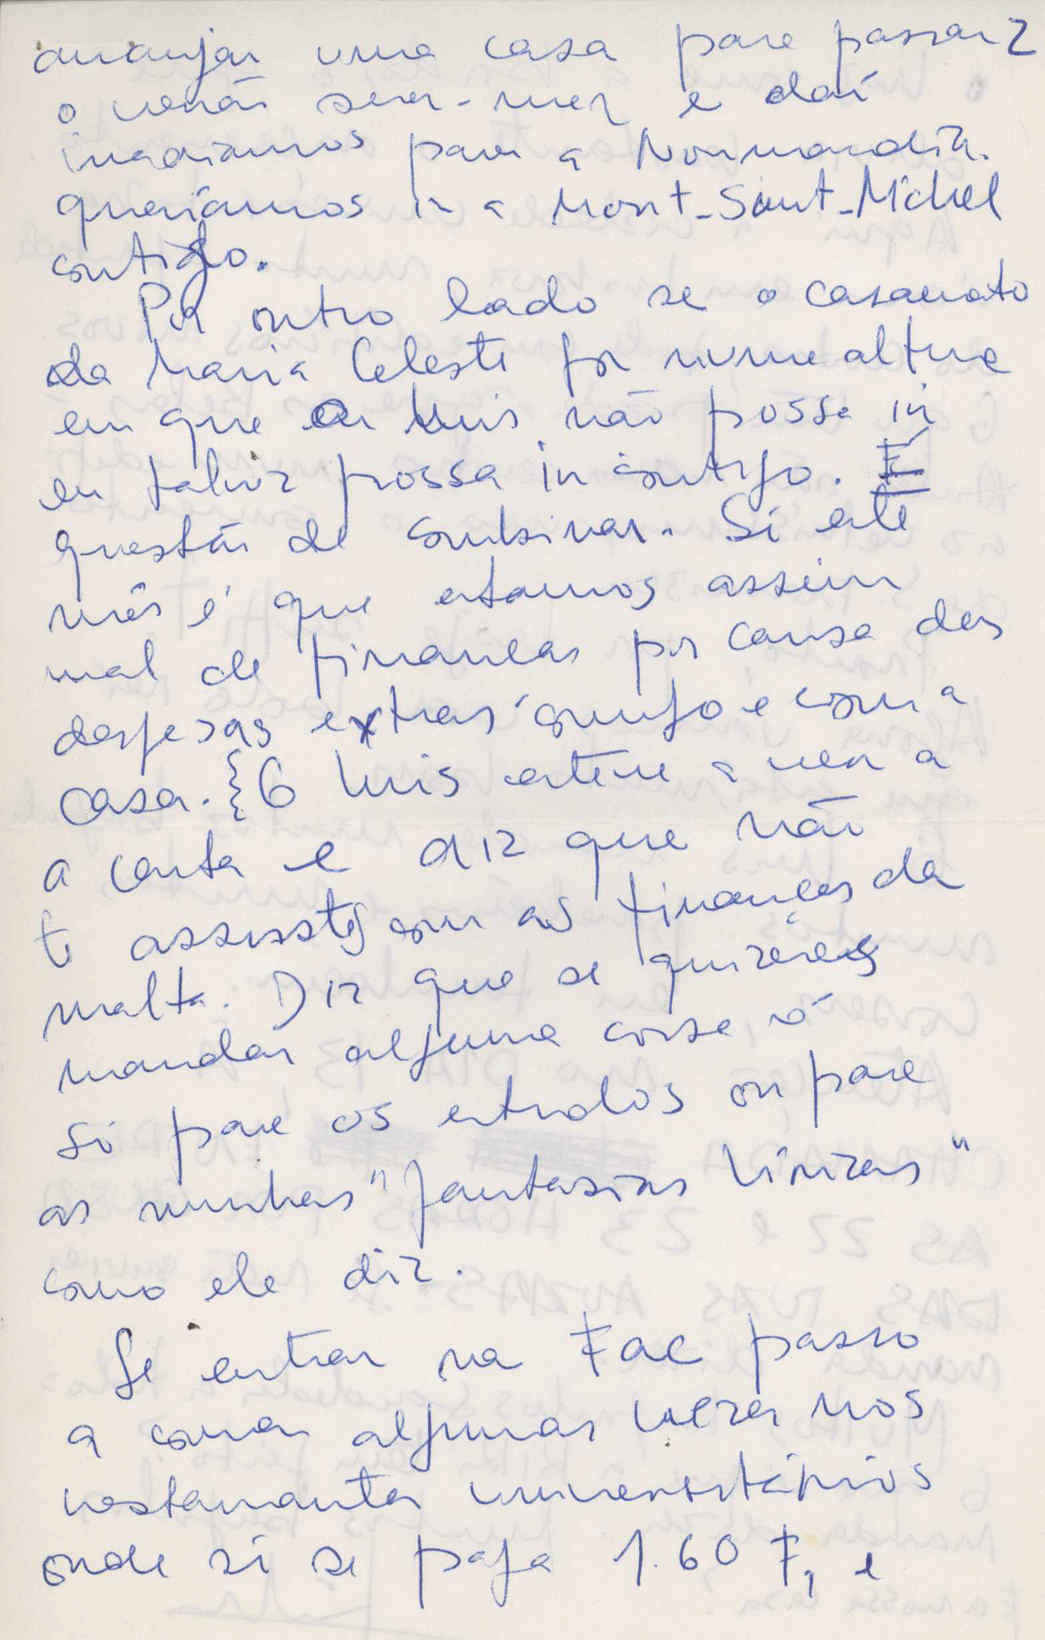 arranjar uma casa para passar 2
o verão sena-mer e daí
iriamos para a Normandia.
queríamos ir a Mont-Saint-Michel
contigo.
Por outro lado se o casamento
da Maria Celeste for numa altura
em que o Luis não possa ir
eu talvez possa ir contigo. É
questão de combinar. Só este
mês é que estamos assim
mal de finanças por causa das
despesas extras comigo e com a
casa. { O Luis esteve a ver a
a carta e diz que não
te assustes com as finanças da
malta. Diz que se quizeres
mandar alguma coisa é
só para os estudos ou para
as minhas "fantasias líricas"
como ele diz.
Se entrar na Fac passo
a comer algumas vezes nos
restaurantes universitários
onde só se paga 1.60 F, e